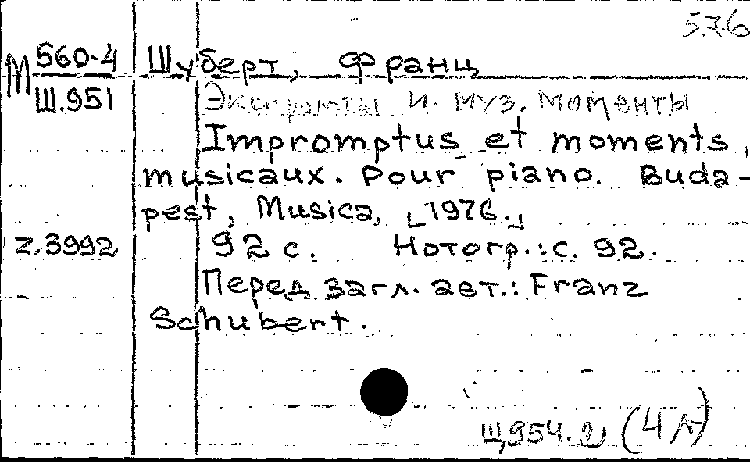 576
М 560-4 Шуберт, Франц
Ш.951 Экспромты и муз. моменты
Impromptus et moments,
musicaux. Pour piano. Buda-
pest, Musica, [1976.]
z.3992 92 с. Нотогр.: с. 92.
Перед загл. авт.: Franz
Schubert.
(4л)